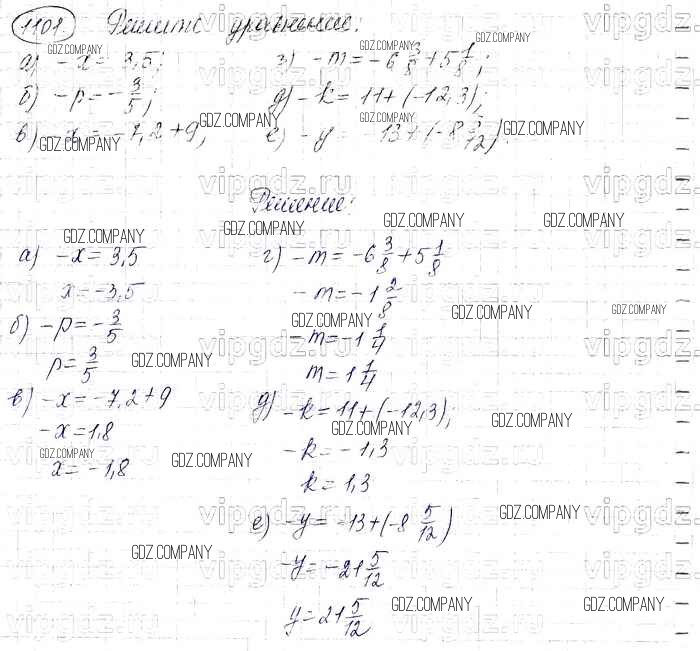 1101 Решите уравнение:
а) -x = 3,5;
б) -p = -3/5;
в) -x = -7,2 + 9;
г) -m = -6 3/8 + 5 1/8;
д) -k = 11 + (-12,3);
е) -y = -13 + (-8 5/12).
Решение:
а) -x = 3,5
x = -3,5
б) -p = -3/5
p = 3/5
в) -x = -7,2 + 9
-x = 1,8
x = -1,8
г) -m = -6 3/8 + 5 1/8
-m = -1 2/8
-m = -1 1/4
m = 1 1/4
д) -k = 11 + (-12,3);
-k = -1,3
k = 1,3
е) -y = -13 + (-8 5/12)
-y = -21 5/12
y = 21 5/12
GDZ.COMPANY
vipgdz.ru